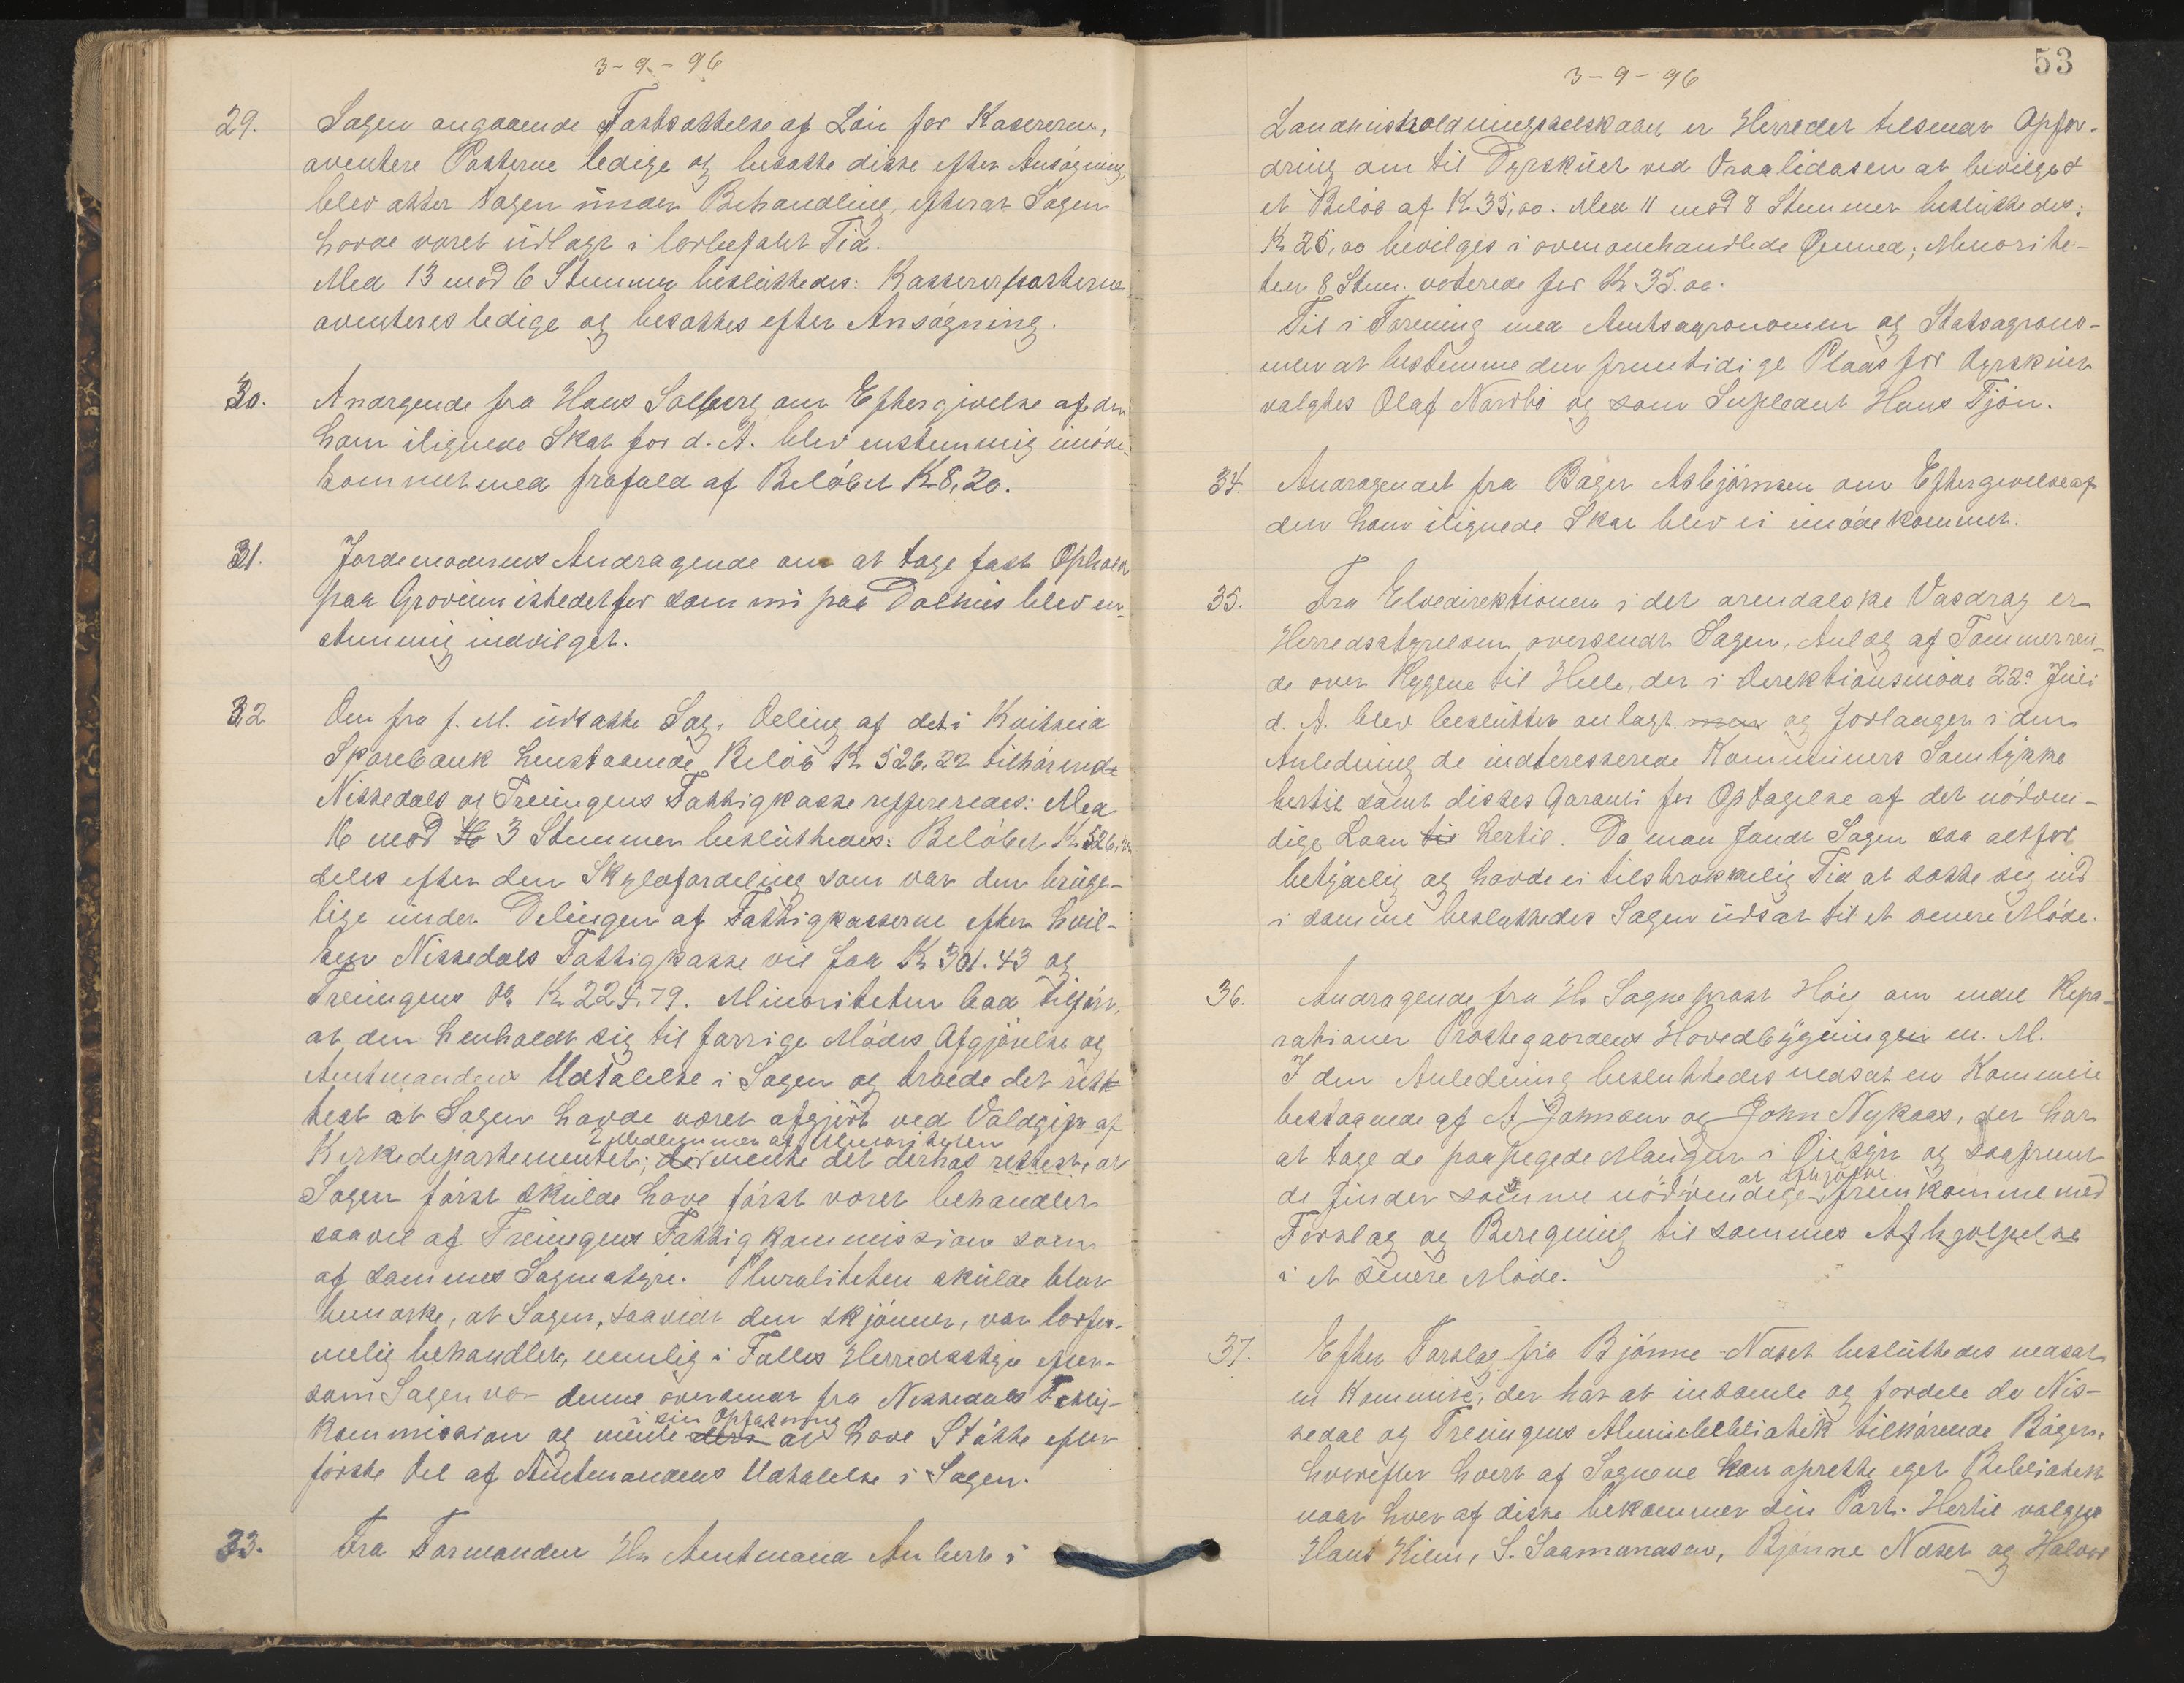 3-9-96
29. Sagen angaaende Fastsættelse af Løn for Kasererne,
avertere Posterne ledige og besætte disse efter Ansøgning,
blev atter tagen under Behandling, efterat Sagen
havde været udlagt i lovbefalet Tid.
Med 13 mod 6 Stemmer besluttedes: Kassererposterne
averteres ledige og besættes efter Ansøgning.
30. Andragende fra Hans Solberg om Eftergivelse af den
ham ilignede Skat for d. A. blev enstemmig imøde-
kommet med frafald af Beløbet Kr 8,20.
31. Jordemoderens Andragende om at tage fast Ophold
paa Groven istedetfor som nu paa Dalhus blev en-
stemmig indvilget.
32 Den fra f. M. udsatte Sag, Deling af det i Kvitseid
Sparebank henstaaende Beløb Kr 526.22 tilhørende
Nissedals og Treungens Fattigkasse refereredes: Med
16 mod 16 3 Stemmer besluttedes: Beløbet Kr 526,22
deles efter den Skyldfordeling som var den bruge-
lige under Delingen af Fattigkasserne efter hvil-
ken Nissedals Fattigkasse vil faa Kr 301.43 og
Treungens Kr 224.79. Minoriteten bad tilført,
at den henholdt sig til forrige Mødes Afgjørelse og
Amtmandens Udtalelse i Sagen og troede det rett-
test at Sagen havde været afgjort ved Voldgift af
2 Medlemmer af Minoriteten
Kirkedepartementet; der mente det derhos rettest, at
Sagen først skulde have først været behandlet
saavel af Treungens Fattigkommission som
af sammes Sognestyre. Pluraliteten skulde blot
bemærke, at Sagen, saavidt den skjønner, var lovfor-
melig behandlet, nemlig i Fælles Herredsstyre efter-
som Sagen var denne oversendt fra Nissedals Fattig-
i sin Opfatning
kommission og mente dens at have Støtte efter
første Del af Amtmandens Udtalelse i Sagen.
33. Fra Formanden Hr Amtmand Aubert i
53
3-9-96
Landhusholdningsselskabet er Herredet tilsendt Opfor-
dring om til Dyrskuet ved Vraalidosen at bevilget
et Beløb af Kr 35,00. Med 11 mod 8 Stemmer besluttedes:
Kr 25,00 bevilges i ovenomhandlede Øiemed; Minorite-
ten 8 Stem. voterede for Kr 35.00.
Til i Forening med Amtsagronomen og Statsagrono-
men at bestemme den fremtidige Plads for Dyrskuet
valgtes Olaf Nordbø og som Supleant Hans Tjøn.
34. Andragendet fra Bager Asbjørnsen om Eftergivelse af
den ham ilignede Skat blev ei imødekommet.
35. Fra Elvedirektionen i det arendalske Vasdrag er
Herredsstyrelsen oversendt Sagen, Anlæg af Tømmerren-
de over Rygene til Helle, der i Direktionsmøde 22de Juli
d. A. blev besluttet anlagt men og forlanger i den
Anledning de indteresserede Kommuners Samtykke
hertil samt disses Garanti for Optagelse af det nødven-
dige Laan til hertil. Da man fandt Sagen saa altfor
betydelig og havde ei tilstrækkelig Tid at sætte sig ind
i samme besluttedes Sagen udsat til et senere Møde.
36. Andragende fra Hr Sogneprest Høie om endel Repa-
rationer Prestegaardens Hovedbygningen m. M.
I den Anledning besluttedes nedsat en Kommite
bestaaende af A Johnsen og John Nykaas, der har
at tage de paapegede Mangler i Øiesyn og saafremt
at afhjælpe
de finder samme nødvendige fremkomme med
Forslag og Beregning til sammes Afhjælpelse
i et senere Møde.
37. Efter Forslag fra Bjønne Næset besluttedes nedsat
en Kommite, der har at indsamle og fordele de Nis-
sedal og Treungens Almuebibliothek tilhørende Bøger,
hvorefter hvert af Sognene kan oprette eget Bibliothek
naar hver af disse bekommer sin Part. Hertil valgtes
Hans Kilen, S. Saamundsen, Bjønne Næset og Halvor